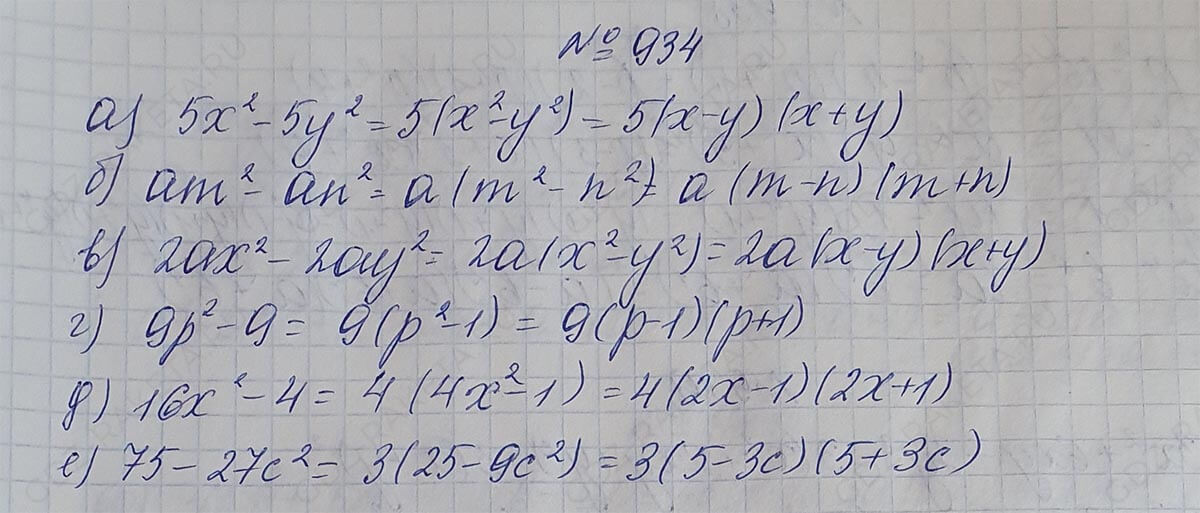 № 934
а) 5x² - 5y² = 5(x² - y²) = 5(x-y)(x+y)
б) am² - an² = a(m² - n²) = a(m-n)(m+n)
в) 2ax² - 2ay² = 2a(x² - y²) = 2a(x-y)(x+y)
г) 9p² - 9 = 9(p² - 1) = 9(p-1)(p+1)
д) 16x² - 4 = 4(4x² - 1) = 4(2x-1)(2x+1)
е) 75 - 27c² = 3(25 - 9c²) = 3(5-3c)(5+3c)